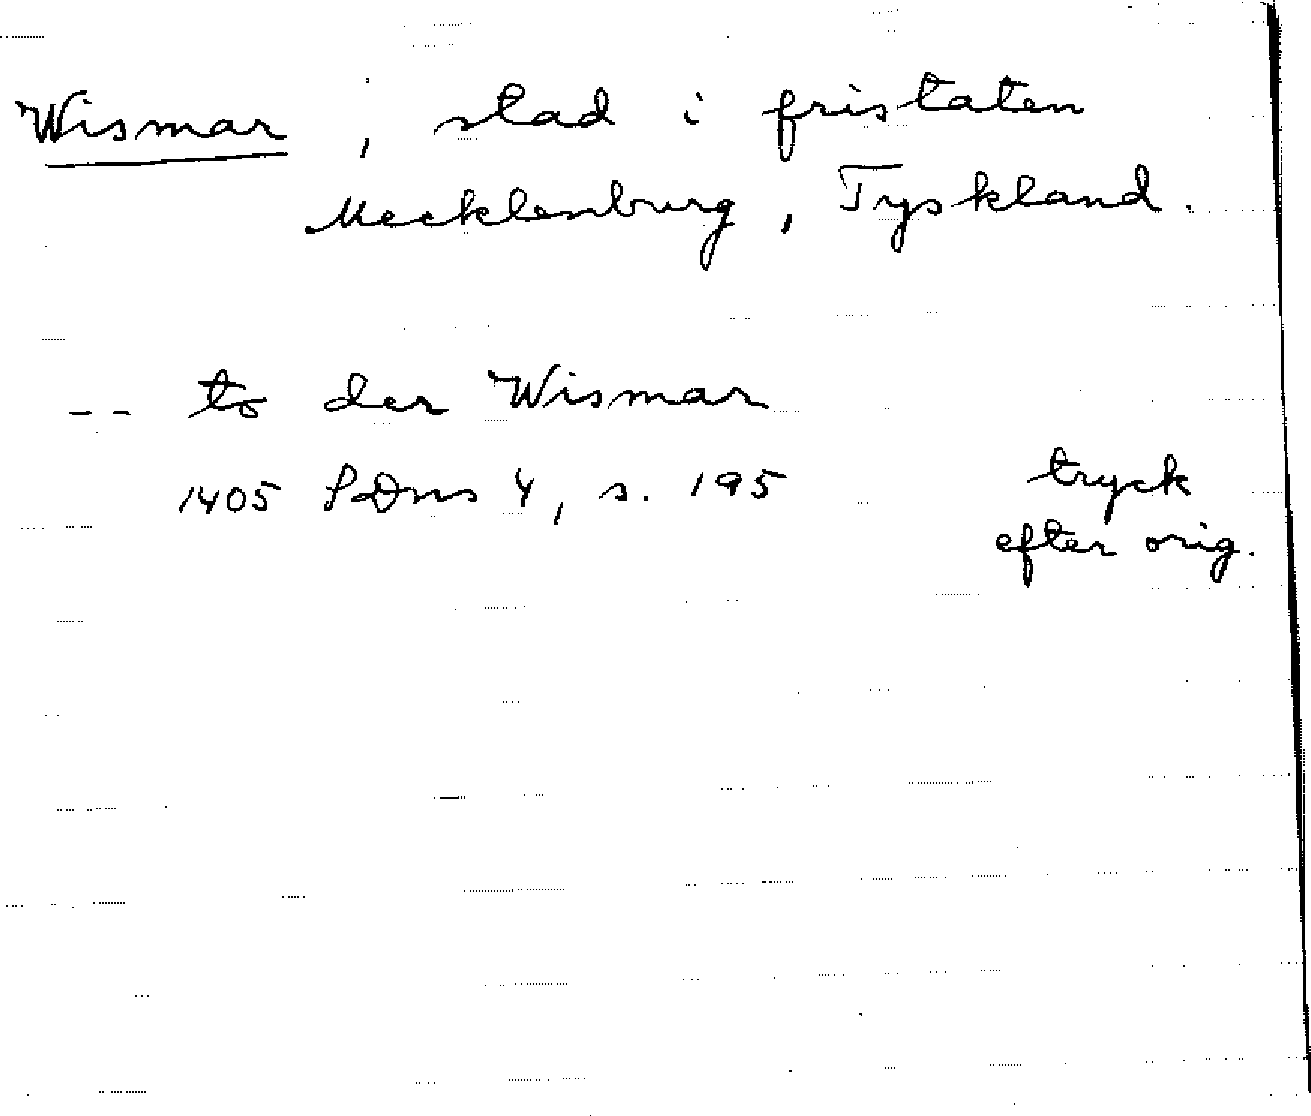 Wismar, stad i fristaten
Mecklenburg, Tyskland.
-- to der Wismar
1405 SDns 4, s. 195
tryck
efter orig.